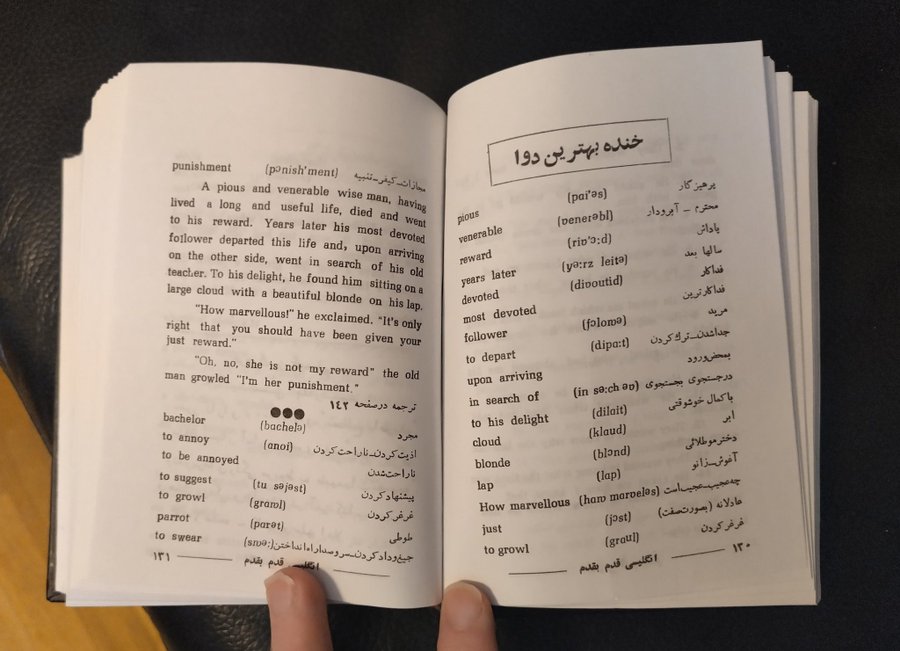 خنده بهترین دوا
pious (pɑi'əs) پرهیزگار
venerable (ʋenerəbl) محترم - آبرودار
reward (riʋ'ɔ:d) پاداش
years later (yə:rz leitə) سالها بعد
devoted (diʋoutid) فداکار
most devoted فداکارترین
follower (fɔloɷə) مرید
to depart (dipɑ:t) جداشدن_ترك کردن
upon arriving بمحض ورود
in search of (in sə:ch əʋ) درجستجوی بجستجوی
to his delight (dilait) باکمال خوشوقتی
cloud (klaud) ابر
blonde (blɔnd) دخترموطلائی
lap (lap) آغوش_زانو
How marvellous (haɷ marʋeləs) چه عجیب_عجیب است
just (jɔst) عادلانه (بصورت صفت)
to growl (graul) غرغر کردن
۱۳۰ انگلیسی قدم بقدم
punishment (pɔnish'ment) مجازات_کیفر_تنبیه
A pious and venerable wise man, having
lived a long and useful life, died and went
to his reward. Years later his most devoted
follower departed this life and, upon arriving
on the other side, went in search of his old
teacher. To his delight, he found him sitting on a
large cloud with a beautiful blonde on his lap.
"How marvellous!" he exclaimed. "It's only
right that you should have been given your
just reward."
"Oh, no, she is not my reward" the old
man growled "I'm her punishment."
ترجمه درصفحه ۱۴۲
bachelor (bachelə) مجرد
to annoy (ənoi) اذیت کردن_ناراحت کردن
to be annoyed ناراحت شدن
to suggest (tu səjəst) پیشنهاد کردن
to growl (graɷl) غرغر کردن
parrot (parət) طوطی
to swear (sɷə:) جیغ و داد کردن_سروصدا راه انداختن
۱۳۱ انگلیسی قدم بقدم